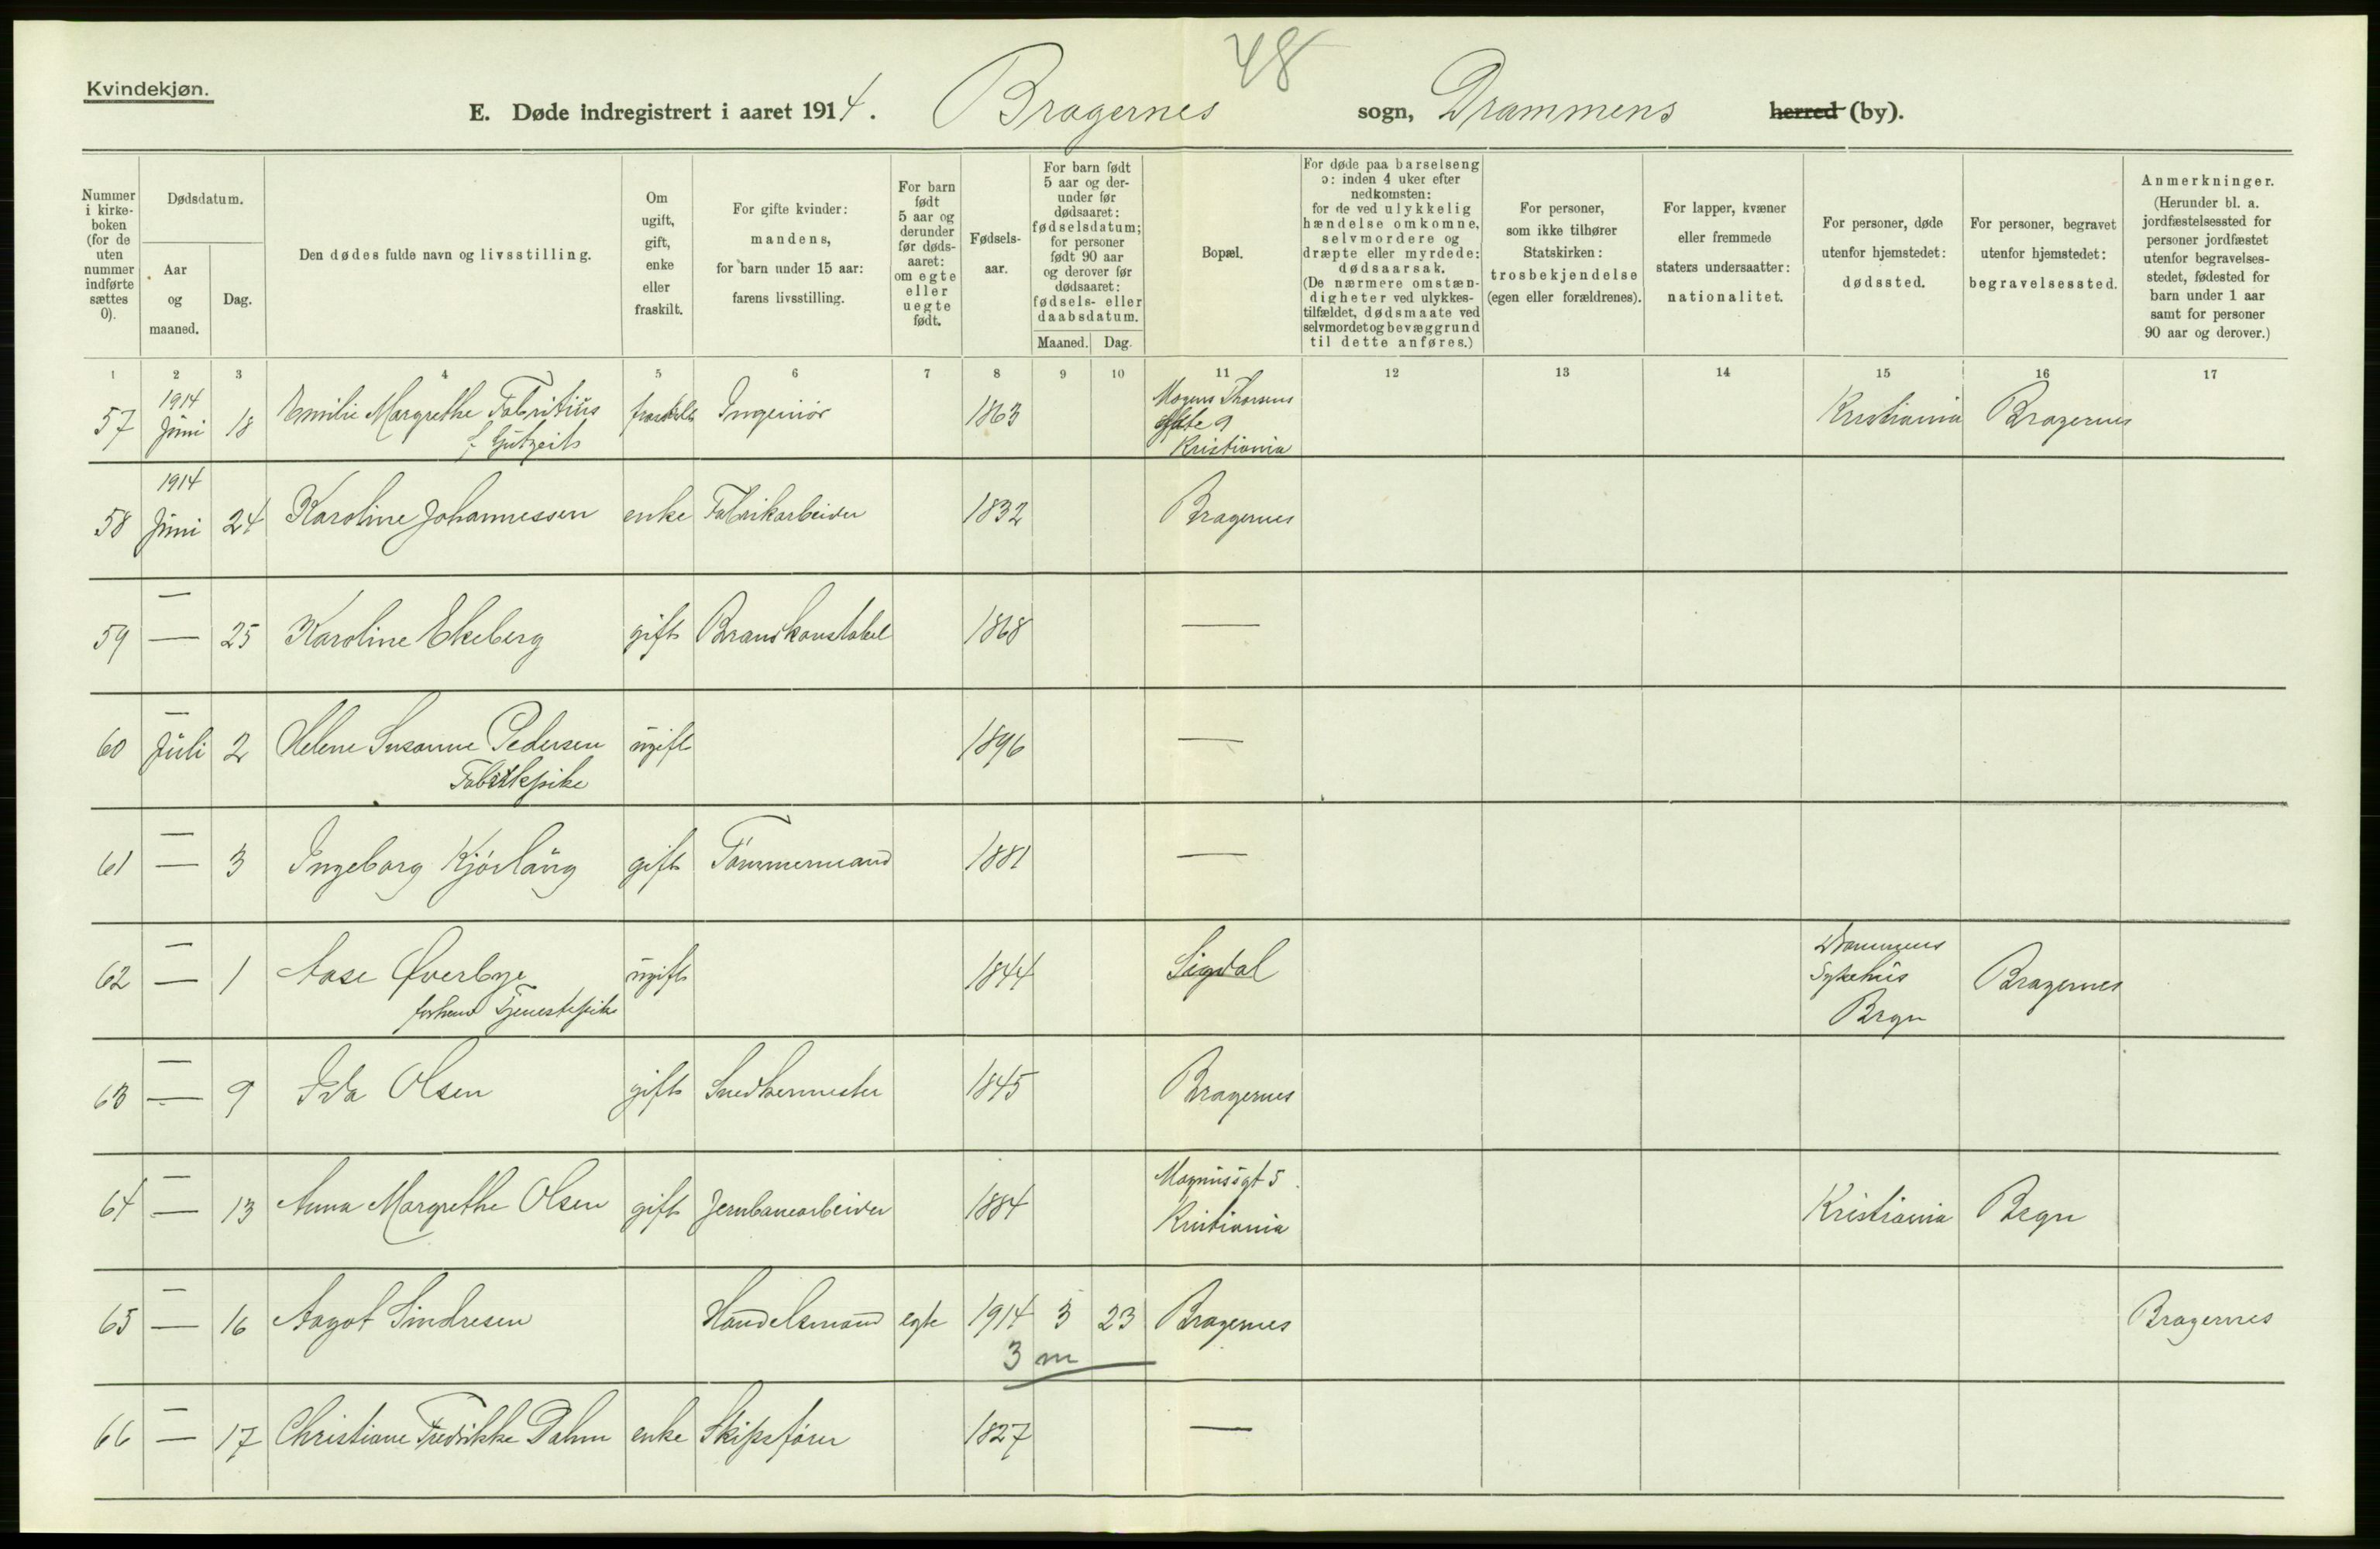 48
Kvindekjøn.
E. Døde indregistrert i aaret 1914. Bragernes sogn, Drammens herred (by).
Nummer i kirke- boken (for de uten nummer indførte sættes 0).
Dødsdatum.
Aar og maaned.
Dag.
Den dødes fulde navn og livsstilling.
Om ugift, gift, enke eller fraskilt.
For gifte kvinder: mandens, for barn under 15 aar: farens livsstilling.
For barn født 5 aar og derunder før døds- aaret: om egte eller uegte født.
Fødsels- aar.
For barn født 5 aar og der- under før dødsaaret: fødselsdatum; for personer født 90 aar og derover før dødsaaret: fødsels- eller daabsdatum.
Maaned. Dag.
Bopæl.
For døde paa barselseng ɔ: inden 4 uker efter nedkomsten: for de ved ulykkelig hændelse omkomne, selvmordere og dræpte eller myrdede: dødsaarsak. (De nærmere omstæn- digheter ved ulykkes- tilfældet, dødsmaate ved selvmordet og bevæggrund til dette anføres.)
For personer, som ikke tilhører Statskirken: trosbekjendelse (egen eller forældrenes).
For lapper, kvæner eller fremmede staters undersaatter: nationalitet.
For personer, døde utenfor hjemstedet: dødssted.
For personer, begravet utenfor hjemstedet: begravelsessted.
Anmerkninger. (Herunder bl. a. jordfæstelsessted for personer jordfæstet utenfor begravelses- stedet, fødested for barn under 1 aar samt for personer 90 aar og derover.)
1 2 3 4 5 6 7 8 9 10 11 12 13 14 15 16 17
57 1914 Juni 18 Emilie Margrethe Fabritius f. Gutzeit fraskilt Ingeniør 1863 Mogens Thorsens Gate 9 Kristiania Kristiania Bragernes
58 1914 Juni 24 Karoline Johannessen enke Fabrikarbeider 1832 Bragernes
59 — — 25 Karoline Ekeberg gift Brandkonstabel 1868 —
60 — Juli 2 Helene Susanne Pedersen Fabrikpike ugift 1896 —
61 — — 3 Ingeborg Kjørlaug gift Tømmermand 1881 —
62 — — 1 Aase Øverbye forhenv Tjenestepike ugift 1844 Sigdal Drammens Sykehus Bragn Bragernes
63 — — 9 Ida Olsen gift Snedkermester 1845 Bragernes
64 — — 13 Anna Margrethe Olsen gift Jernbanearbeider 1884 Magnusgt 5. Kristiania Kristiania Bragn
65 — — 16 Aagot Sindresen Handelsmand egte 1914 3 23 Bragernes Bragernes
3 m
66 — — 17 Christiane Fredrikke Dahm enke Skipsfører 1827 —